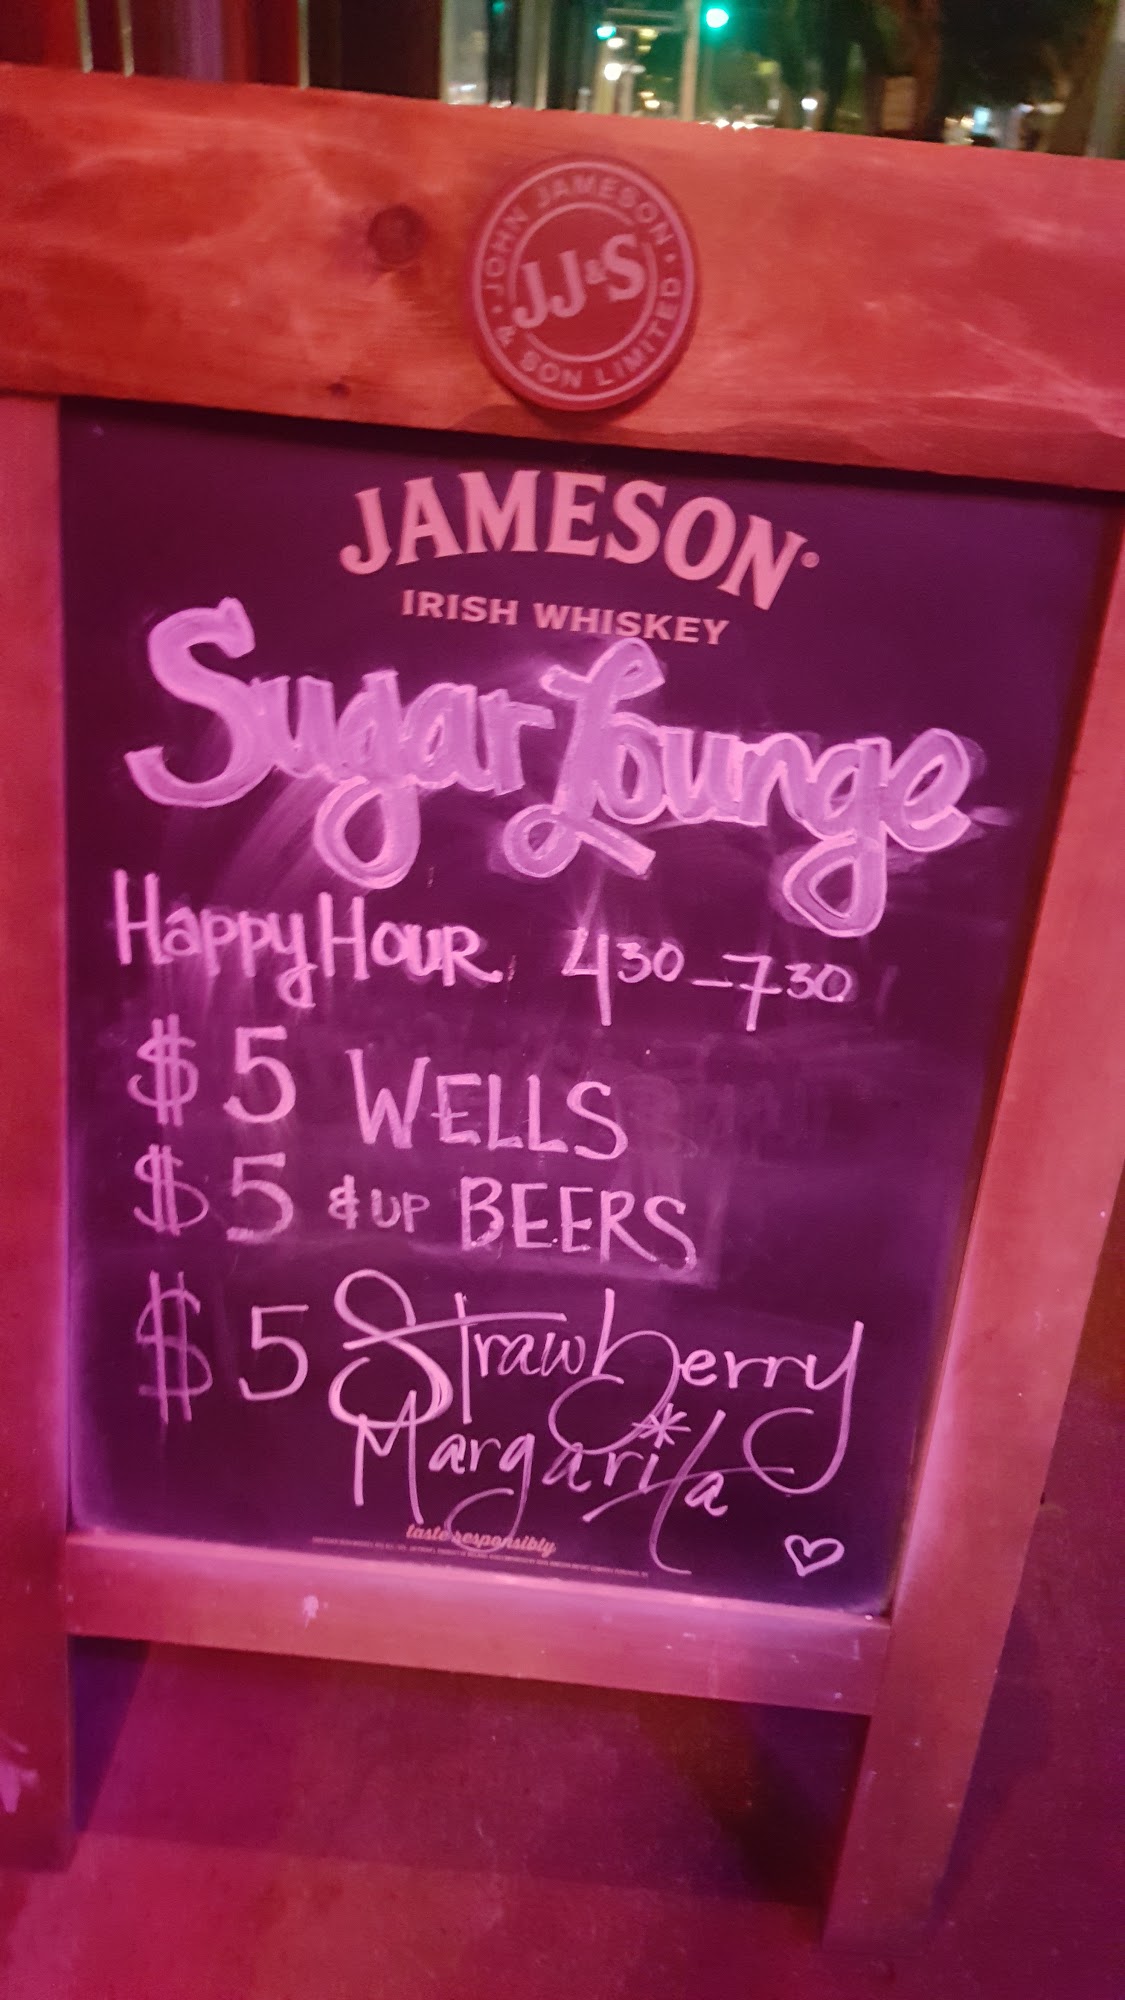 JOHN JAMESON
& SON LIMITED
JJ&S
JAMESON
IRISH WHISKEY
Sugar Lounge
Happy Hour 4:30 – 7:30
$5 WELLS
$5 & UP BEERS
$5 Strawberry
Margarita
taste responsibly